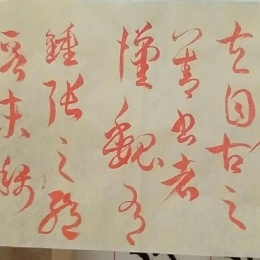 夫自古之
善書者
漢魏有
鍾張之絕
晉末稱